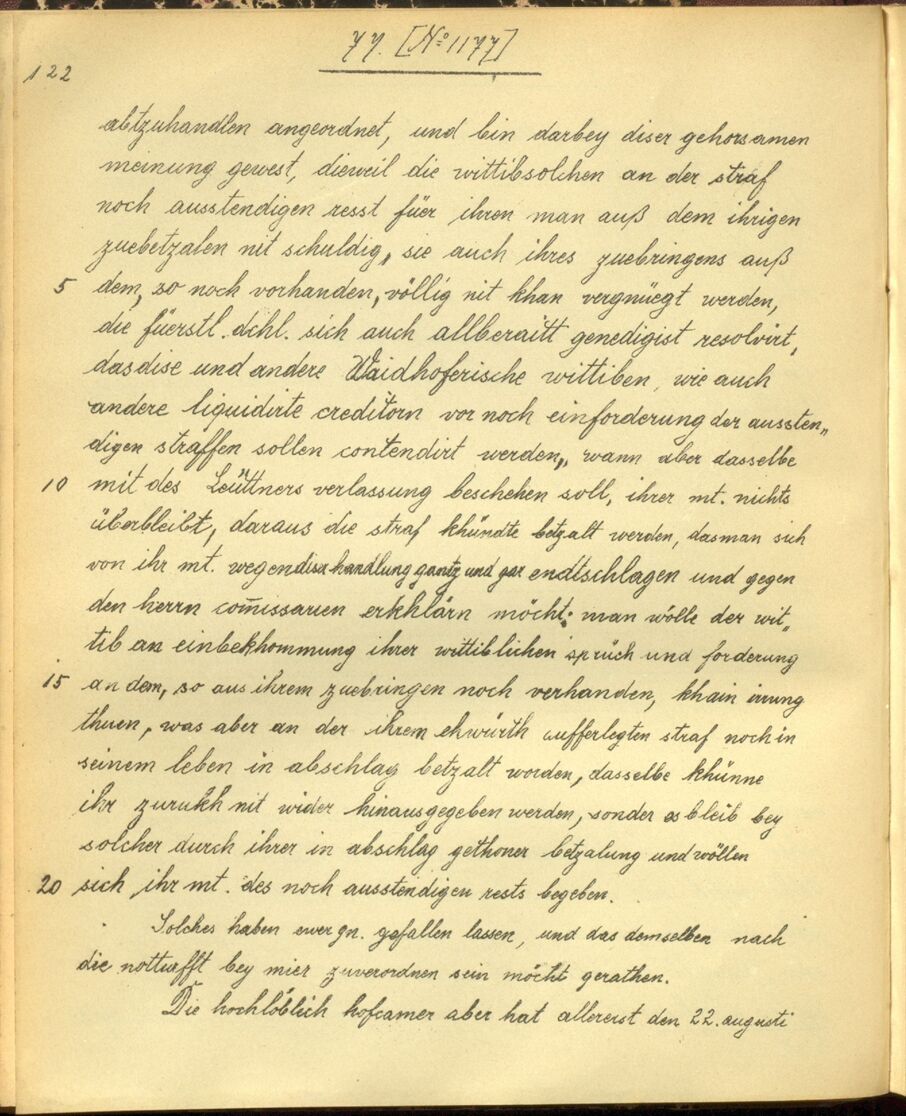 77. [No 1177]
122
abtzuhandlen angeordnet, und bin darbey diser gehorsamen
meinung gewest, dieweil die wittibsolchen an der straf
noch ausstendigen resst füer ihren man auß dem ihrigen
zuebetzalen nit schuldig, sie auch ihres zuebringens auß
5 dem, so noch vorhanden, völlig nit khan vergnüegt werden,
die füerstl. dchl. sich auch allberaitt genedigist resolvirt,
dasdise und andere Waidhoferische wittiben, wie auch
andere liquidirte creditorn vor noch einforderung der aussten„
digen straffen sollen contendirt werden, wann aber dasselbe
10 mit des Leüttners verlassung beschehen soll, ihrer mt. nichts
überbleibt, daraus die straf khündte betzalt werden, dasman sich
von ihr mt. wegendiser handlung gantz und gar endtschlagen und gegen
den herrn com̄issarien erkhlärn möcht: man wölle der wit„
tib an einbekhommung ihrer wittiblichen sprüch und forderung
15 an dem, so aus ihrem zuebringen noch verhanden, khain irrung
thuen, was aber an der ihrem ehwürth aufferlegten straf noch in
seinem leben in abschlag betzalt worden, dasselbe khünne
ihr zurukh nit wider hinausgegeben werden, sonder es bleib bey
solcher durch ihrer in abschlag gethoner betzalung und wöllen
20 sich ihr mt. des noch ausstendigen rests begeben.
Solches haben ewer gn. gefallen lassen, und das demselben nach
die notturfft bey mier zuverordnen sein möcht gerathen.
Die hochlöblich hofcamer aber hat allererst den 22. augusti